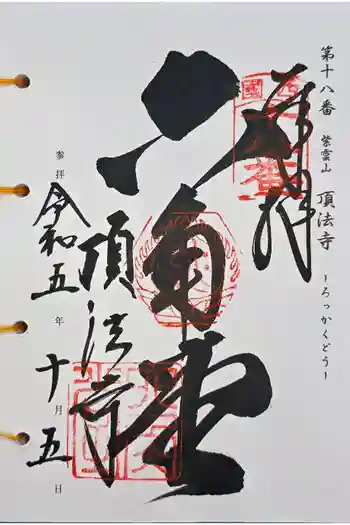 第十八番 紫雲山 頂法寺 ーろっかくどうー
奉拝
六角堂
頂法寺
参拝 令和五年十月五日